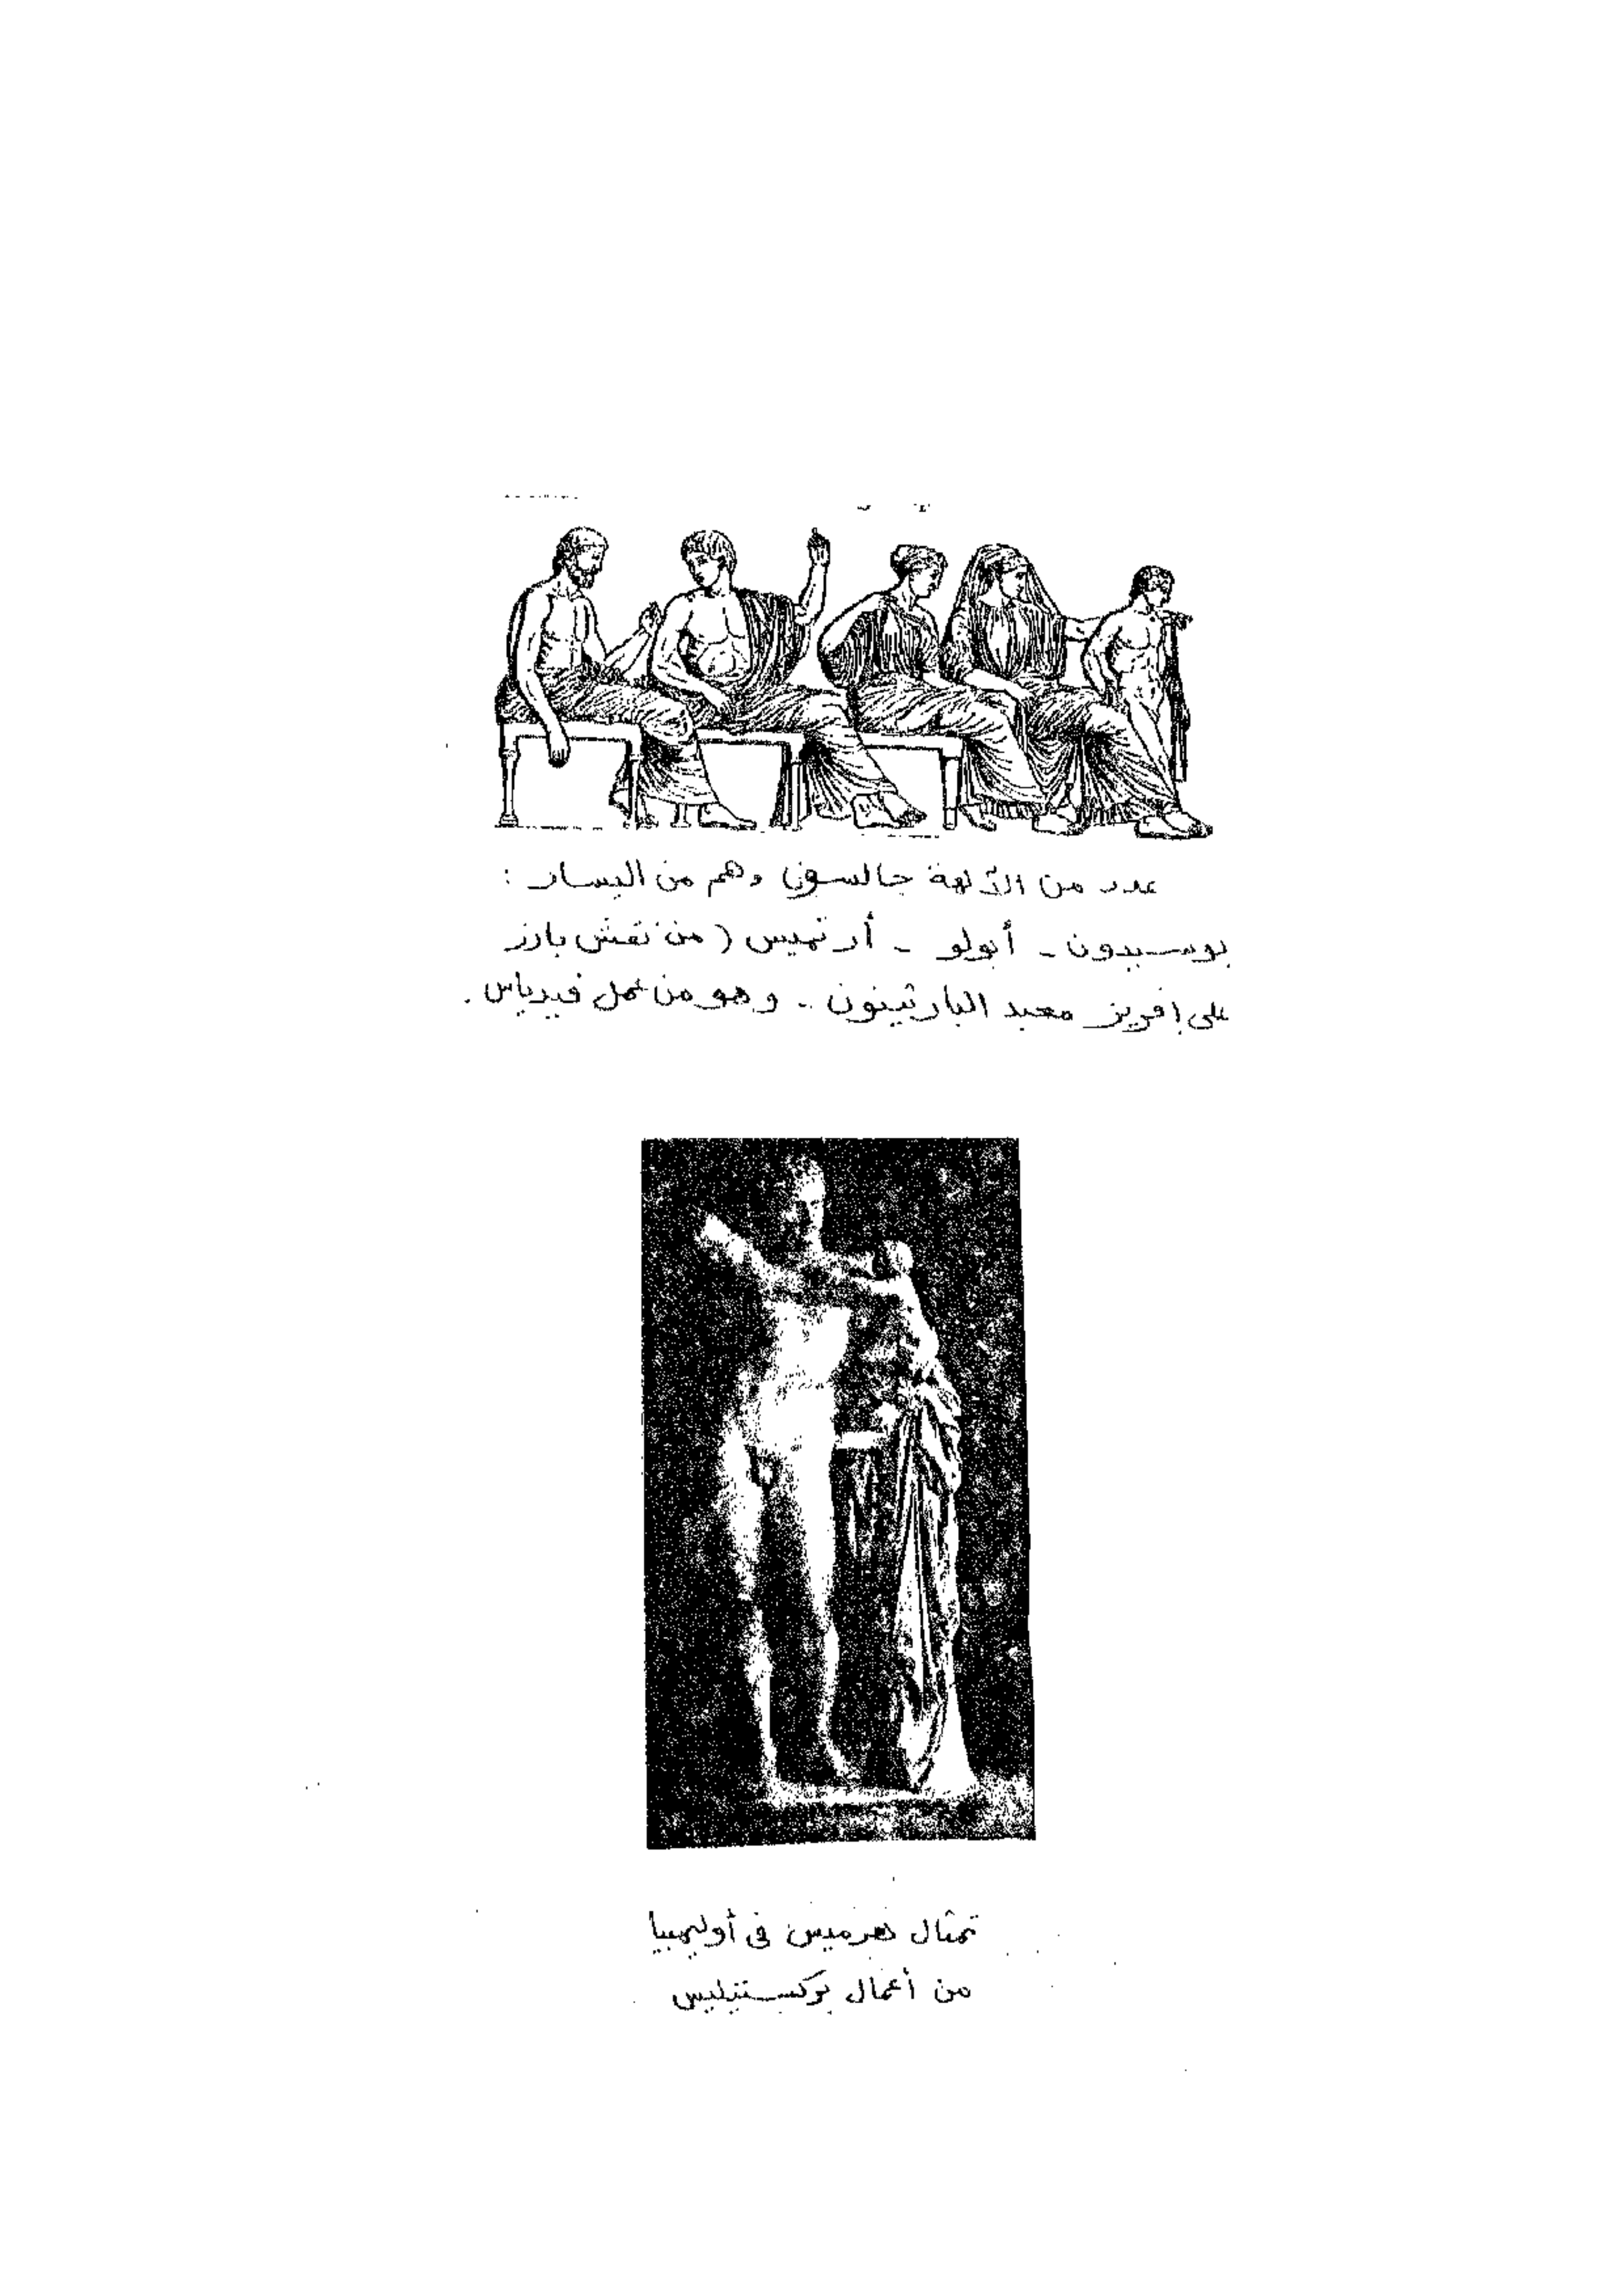 عدد من الآلهة جالسون وهم من اليسار :
بوسيدون - أبولو - أرتميس ( من نقش بارز
على إفريز معبد البارثينون - وهو من عمل فيدياس .
تمثال هرميس فى أوليمبيا
من أعمال بركستيليس